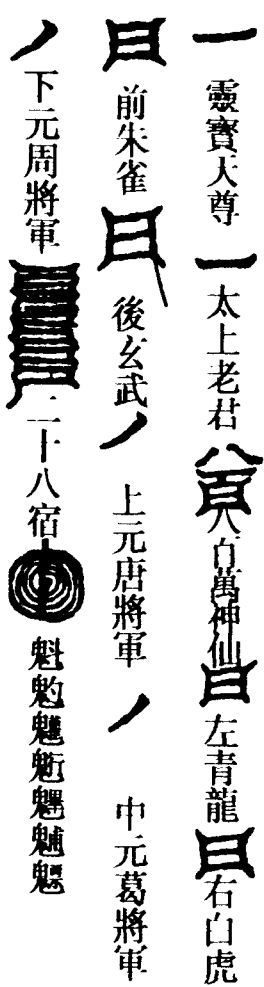 一靈寶天尊一太上老君八百八百萬神仙日左青龍日右白虎
日前朱雀日後玄武ノ上元唐將軍ノ中元葛將軍
ノ下元周將軍二十八宿魁𩲃魓